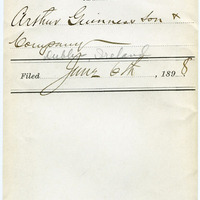 Arthur Guinness Son &
Company
Dublin, Ireland
Filed June 6th, 1898